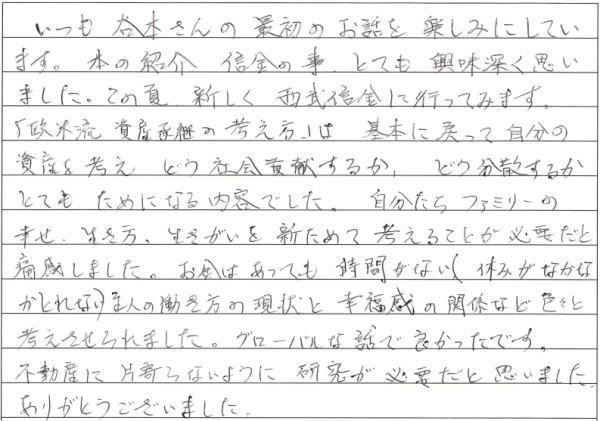 いつも谷本さんの最初のお話を楽しみにしてい
ます。本の紹介 信金の事、とても興味深く思い
ました。この夏 新しく 西武信金に行ってみます。
「欧米流 資産承継の考え方」は 基本に戻って自分の
資産を考え どう社会貢献するか、どう分散するか
とても ためになる内容でした。 自分たち ファミリーの
幸せ、生き方、生きがいを新ためて考えることが必要だと
痛感しました。お金はあっても 時間がない(休みがなかな
かとれない)主人の働き方の現状と幸福感の関係など色々と
考えさせられました。グローバルな話で良かったです。
不動産に片寄らないように 研究が必要だと思いました。
ありがとうございました。